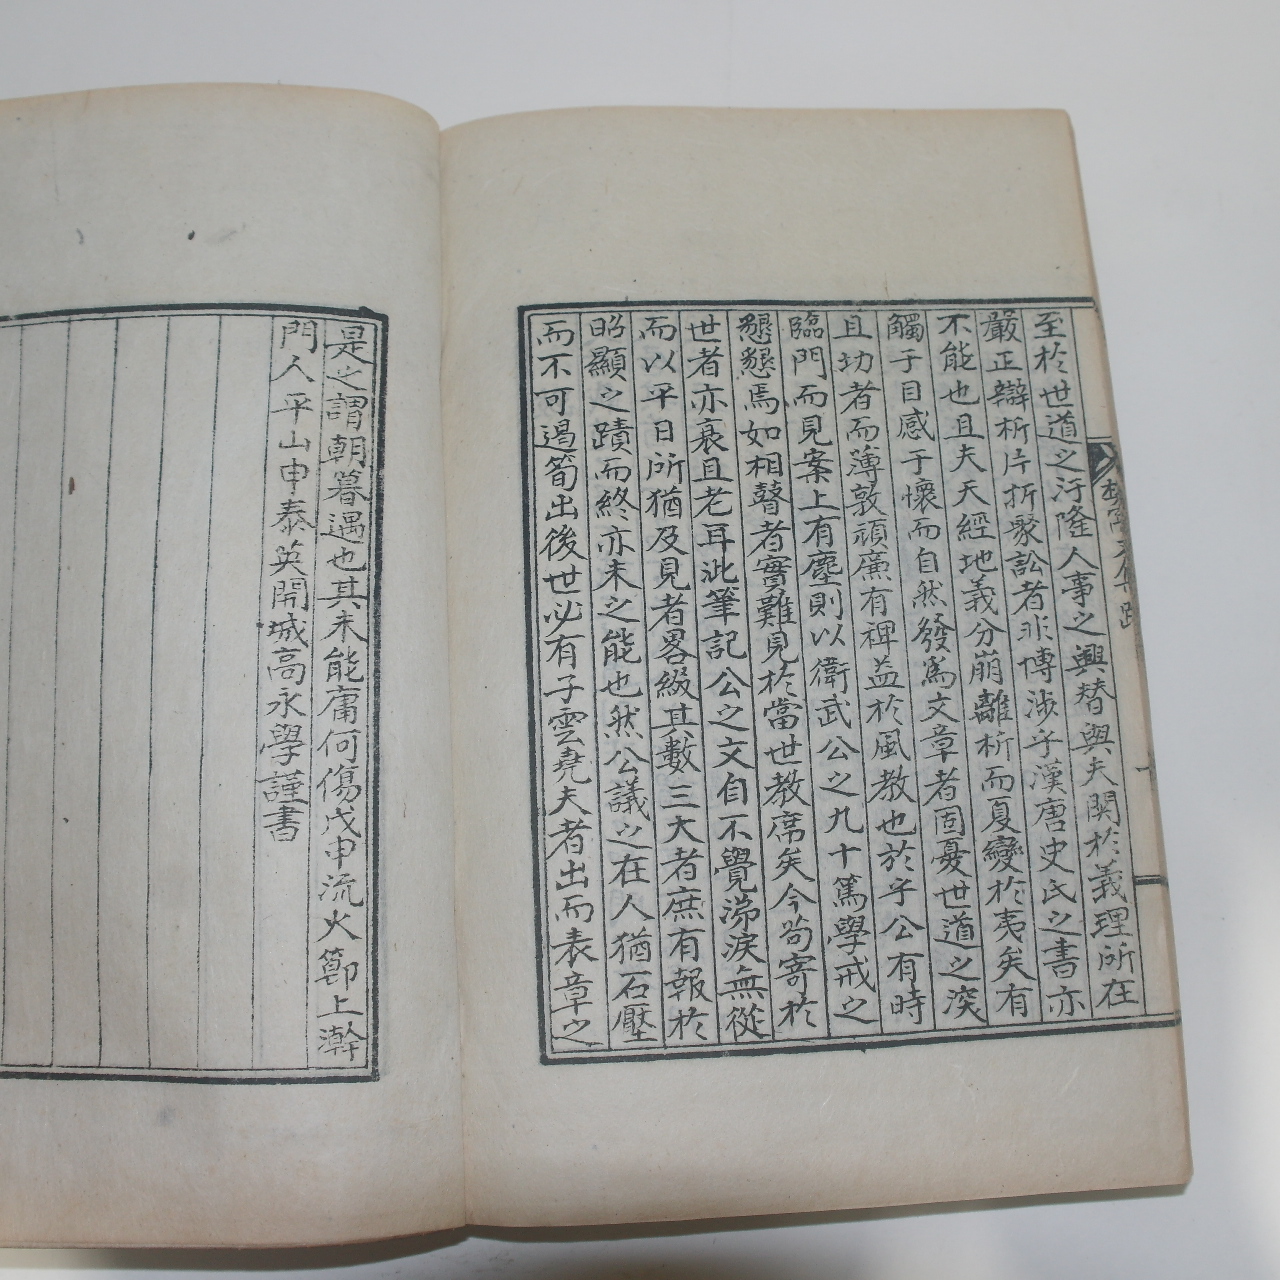 至於世道之汙隆人事之興替與夫関於義理所在
嚴正辯析片折聚訟者非博涉乎漢唐史氏之書亦
不能也且夫天經地義分崩離析而夏變於夷矣有
觸于目感于懷而自然發爲文章者固憂世道之深
且功者而薄敦頑廉有裨益於風教也於乎公有時
臨門而見案上有塵則以衛武公之九十篤學戒之
懇懇焉如相瞽者實難見於當世教席矣今茍寄於
世者亦衰且老耳此筆記公之文自不覺涕淚無從
而以平日所猶及見者畧綴其數三大者庶有報於
昭顯之蹟而終亦未之能也然公議之在人猶石壓
而不可遏筍出後世必有子雲堯夫者出而表章之
是之謂朝暮遇也其未能庸何傷戊申流火節上澣
門人平山申泰英開城高永學謹書